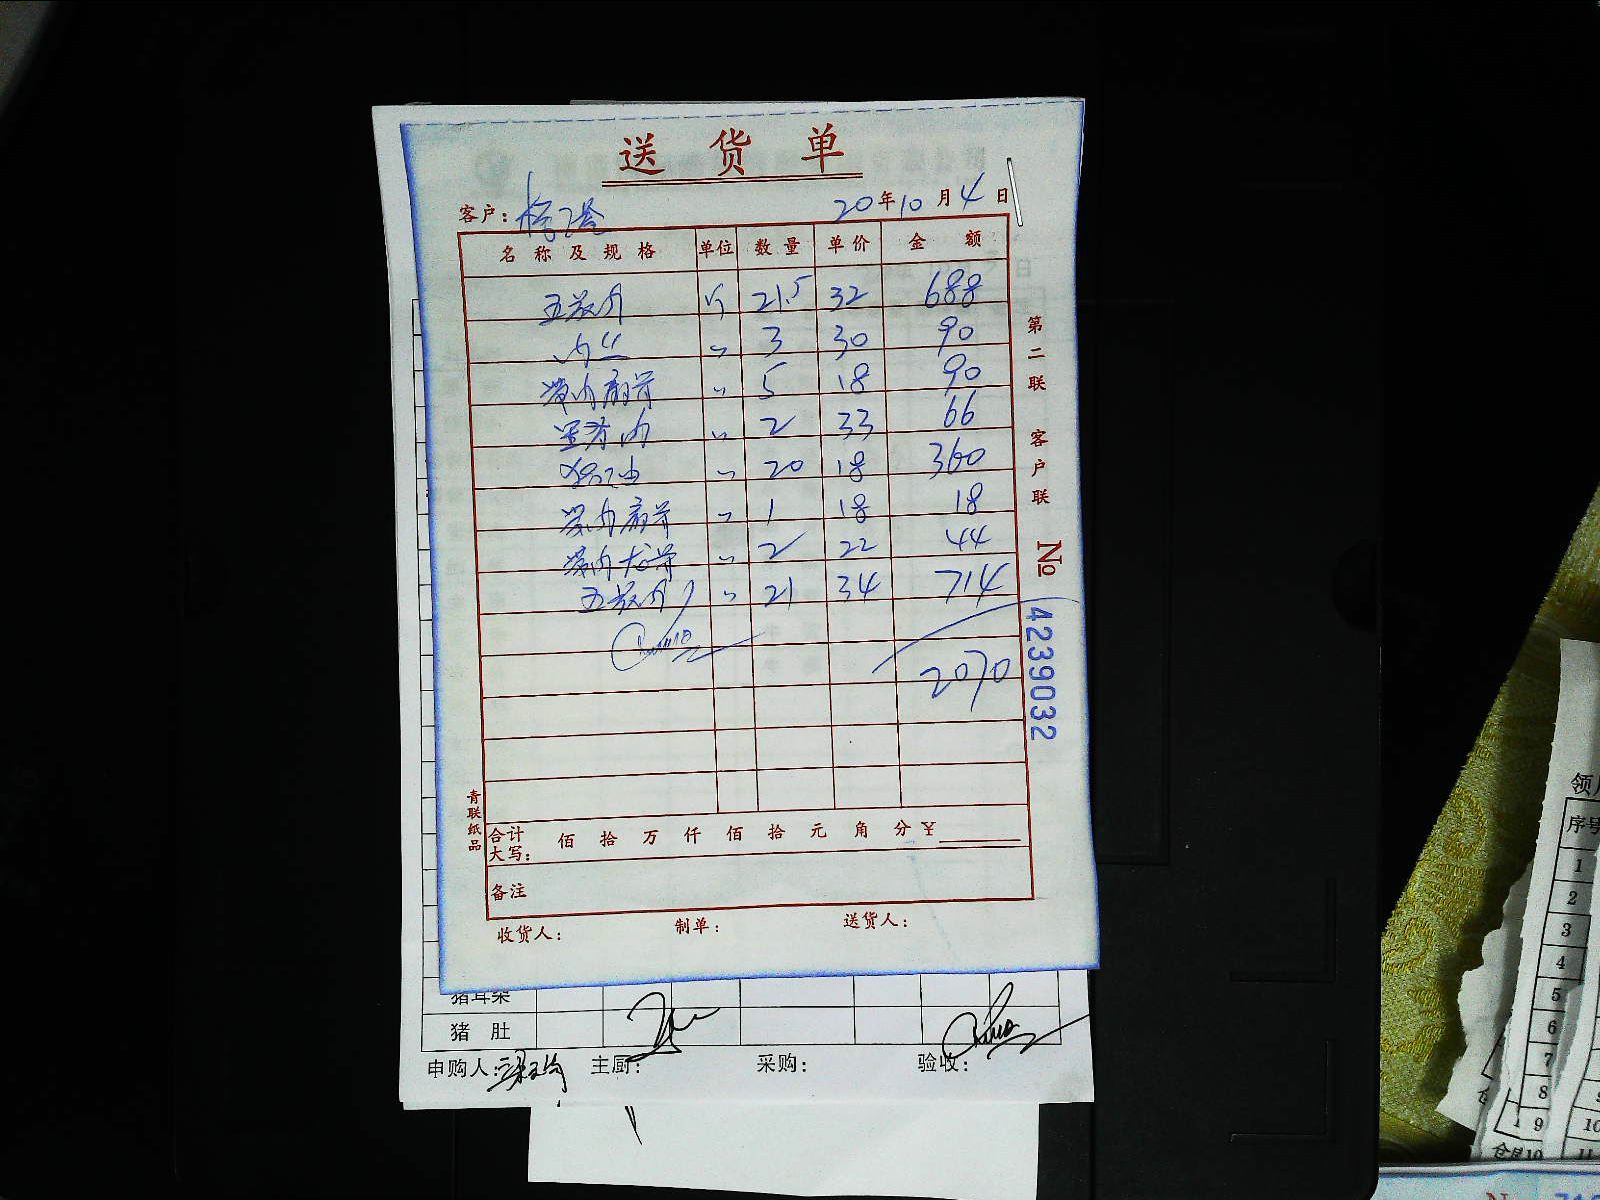 送货单
客户: 20年10月4日
名称及规格 单位 数量 单价 金额
五花肉 斤 21.5 32 688
肉丝 〃 3 30 90
带内扇骨 〃 5 18 90
里脊肉 〃 2 33 66
猪油 〃 20 18 360
带肉扇骨 〃 1 18 18
带肉龙骨 〃 2 22 44
五花肉 〃 21 34 714
2070
合计大写: 佰 拾 万 仟 佰 拾 元 角 分 ¥
备注
收货人: 制单: 送货人:
第二联 客户联 № 4239032
青联纸品
猪耳朵
猪肚
申购人: 主厨: 采购: 验收:
领
序号
1
2
3
4
5
6
7
8
9
10
11